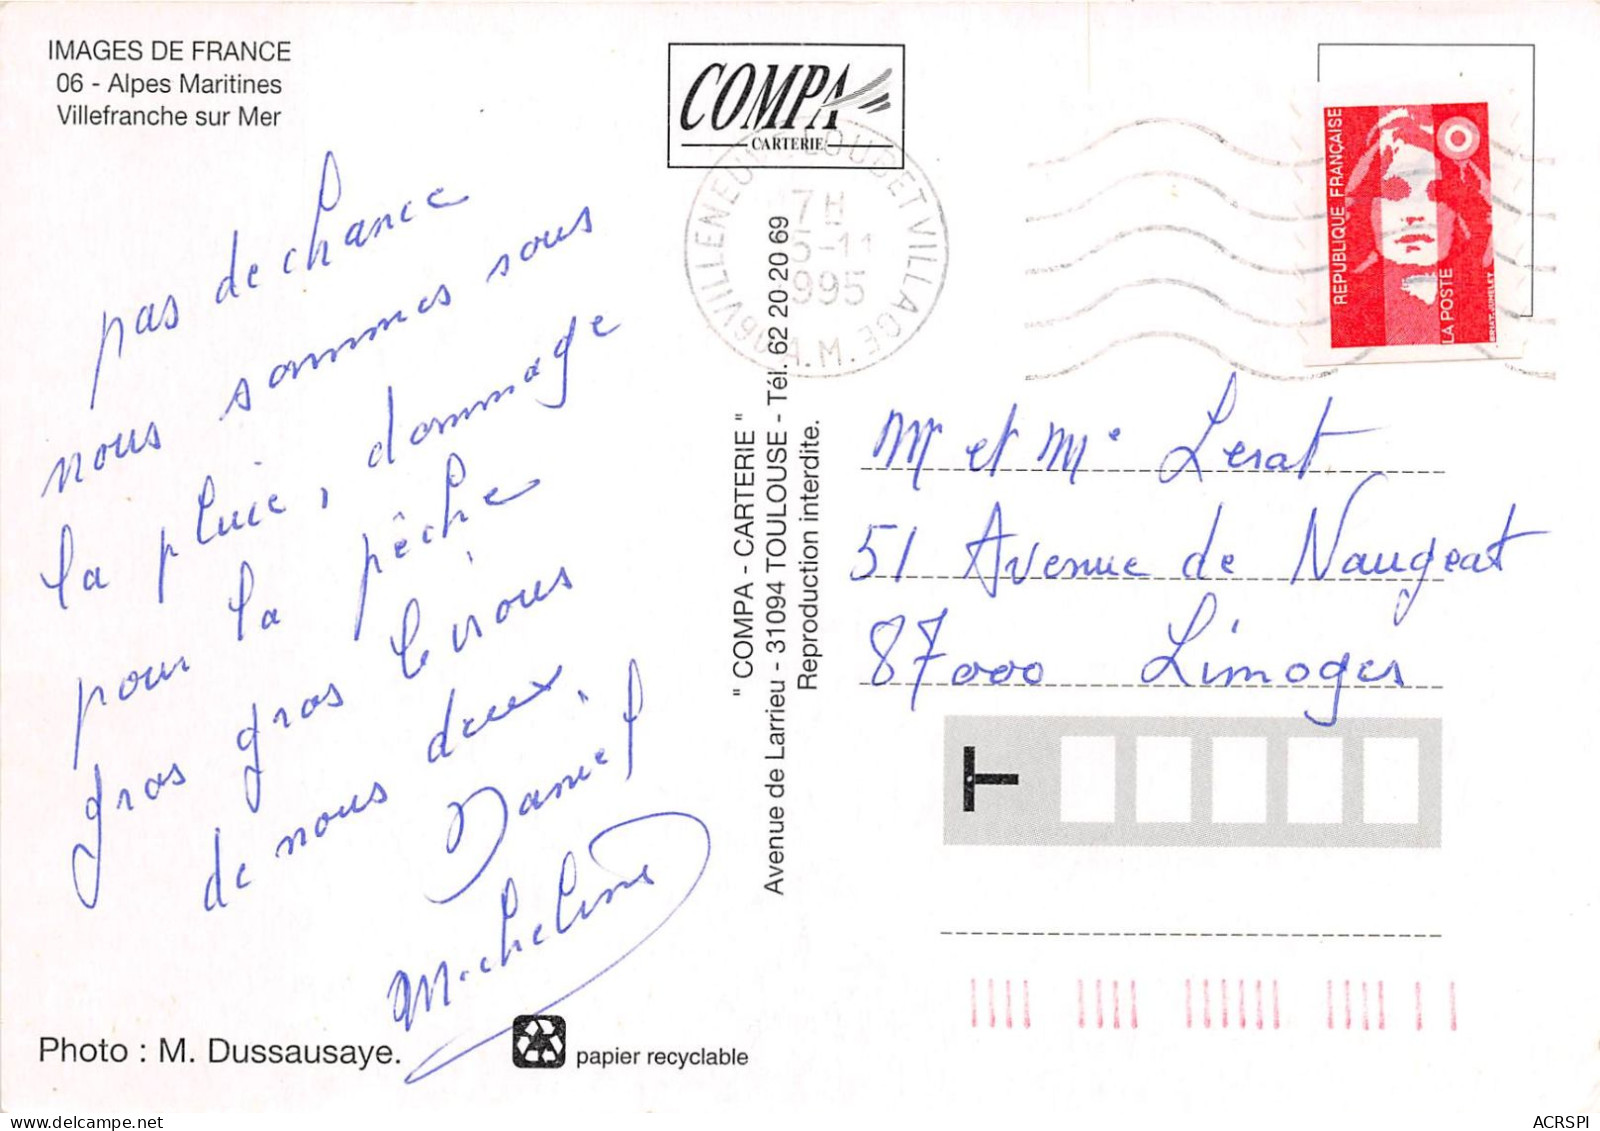 IMAGES DE FRANCE
06 - Alpes Maritines
Villefranche sur Mer
pas de chance
nous sommes sous
la pluie, dommage
pour la pêche
gros gros
de nous deux.
Daniel
Micheline
Photo : M. Dussausaye.
papier recyclable
COMPA
CARTERIE
" COMPA - CARTERIE "
Avenue de Larrieu - 31094 TOULOUSE - Tél. 62 20 20 69
Reproduction interdite.
06 VILLENEUVE LOUBET VILLAGE A.M.
7H
5-11
1995
REPUBLIQUE FRANÇAISE
LA POSTE
BRIAT-JUMELET
Mr et Me Lerat
51 Avenue de Naugeat
87000 Limoges
ACRSPI